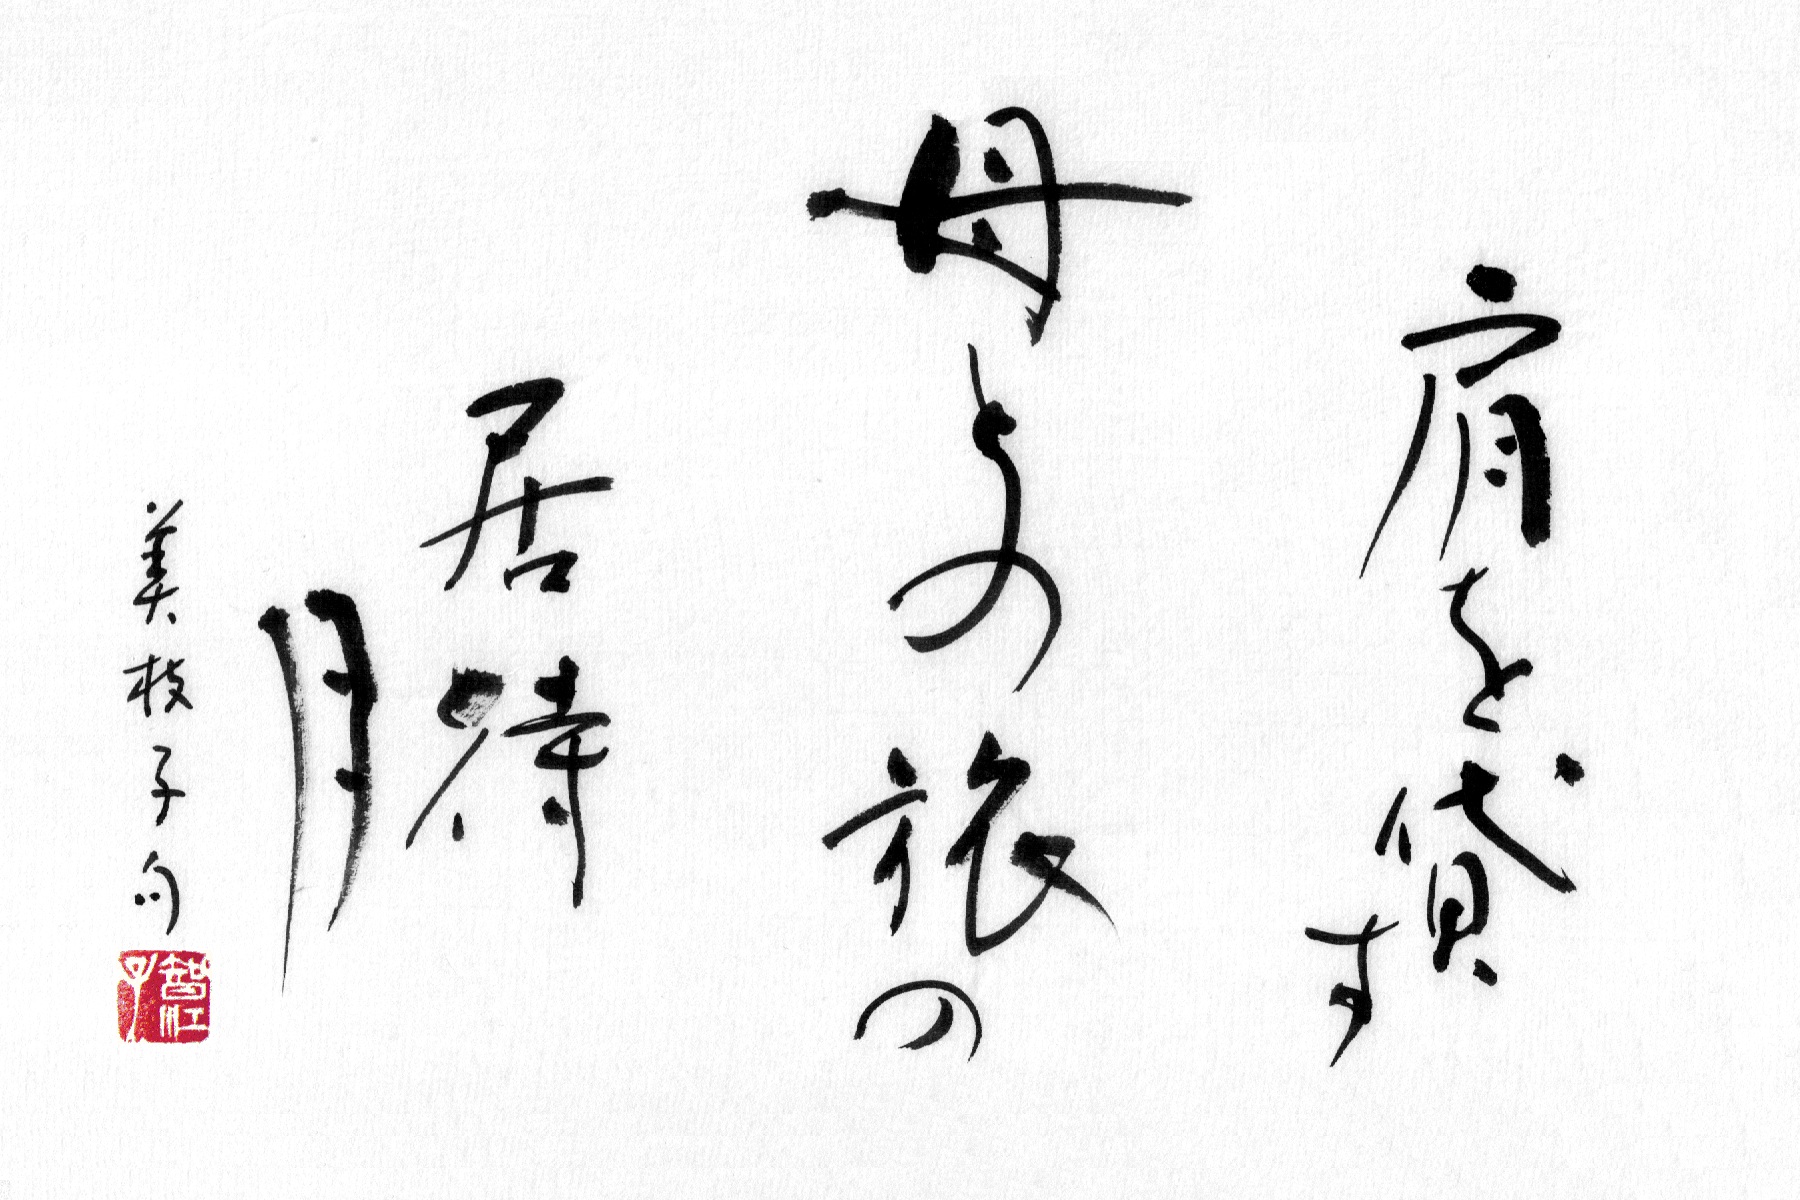 肩を貸す
母との旅の
居待
月
美枝子句
智江